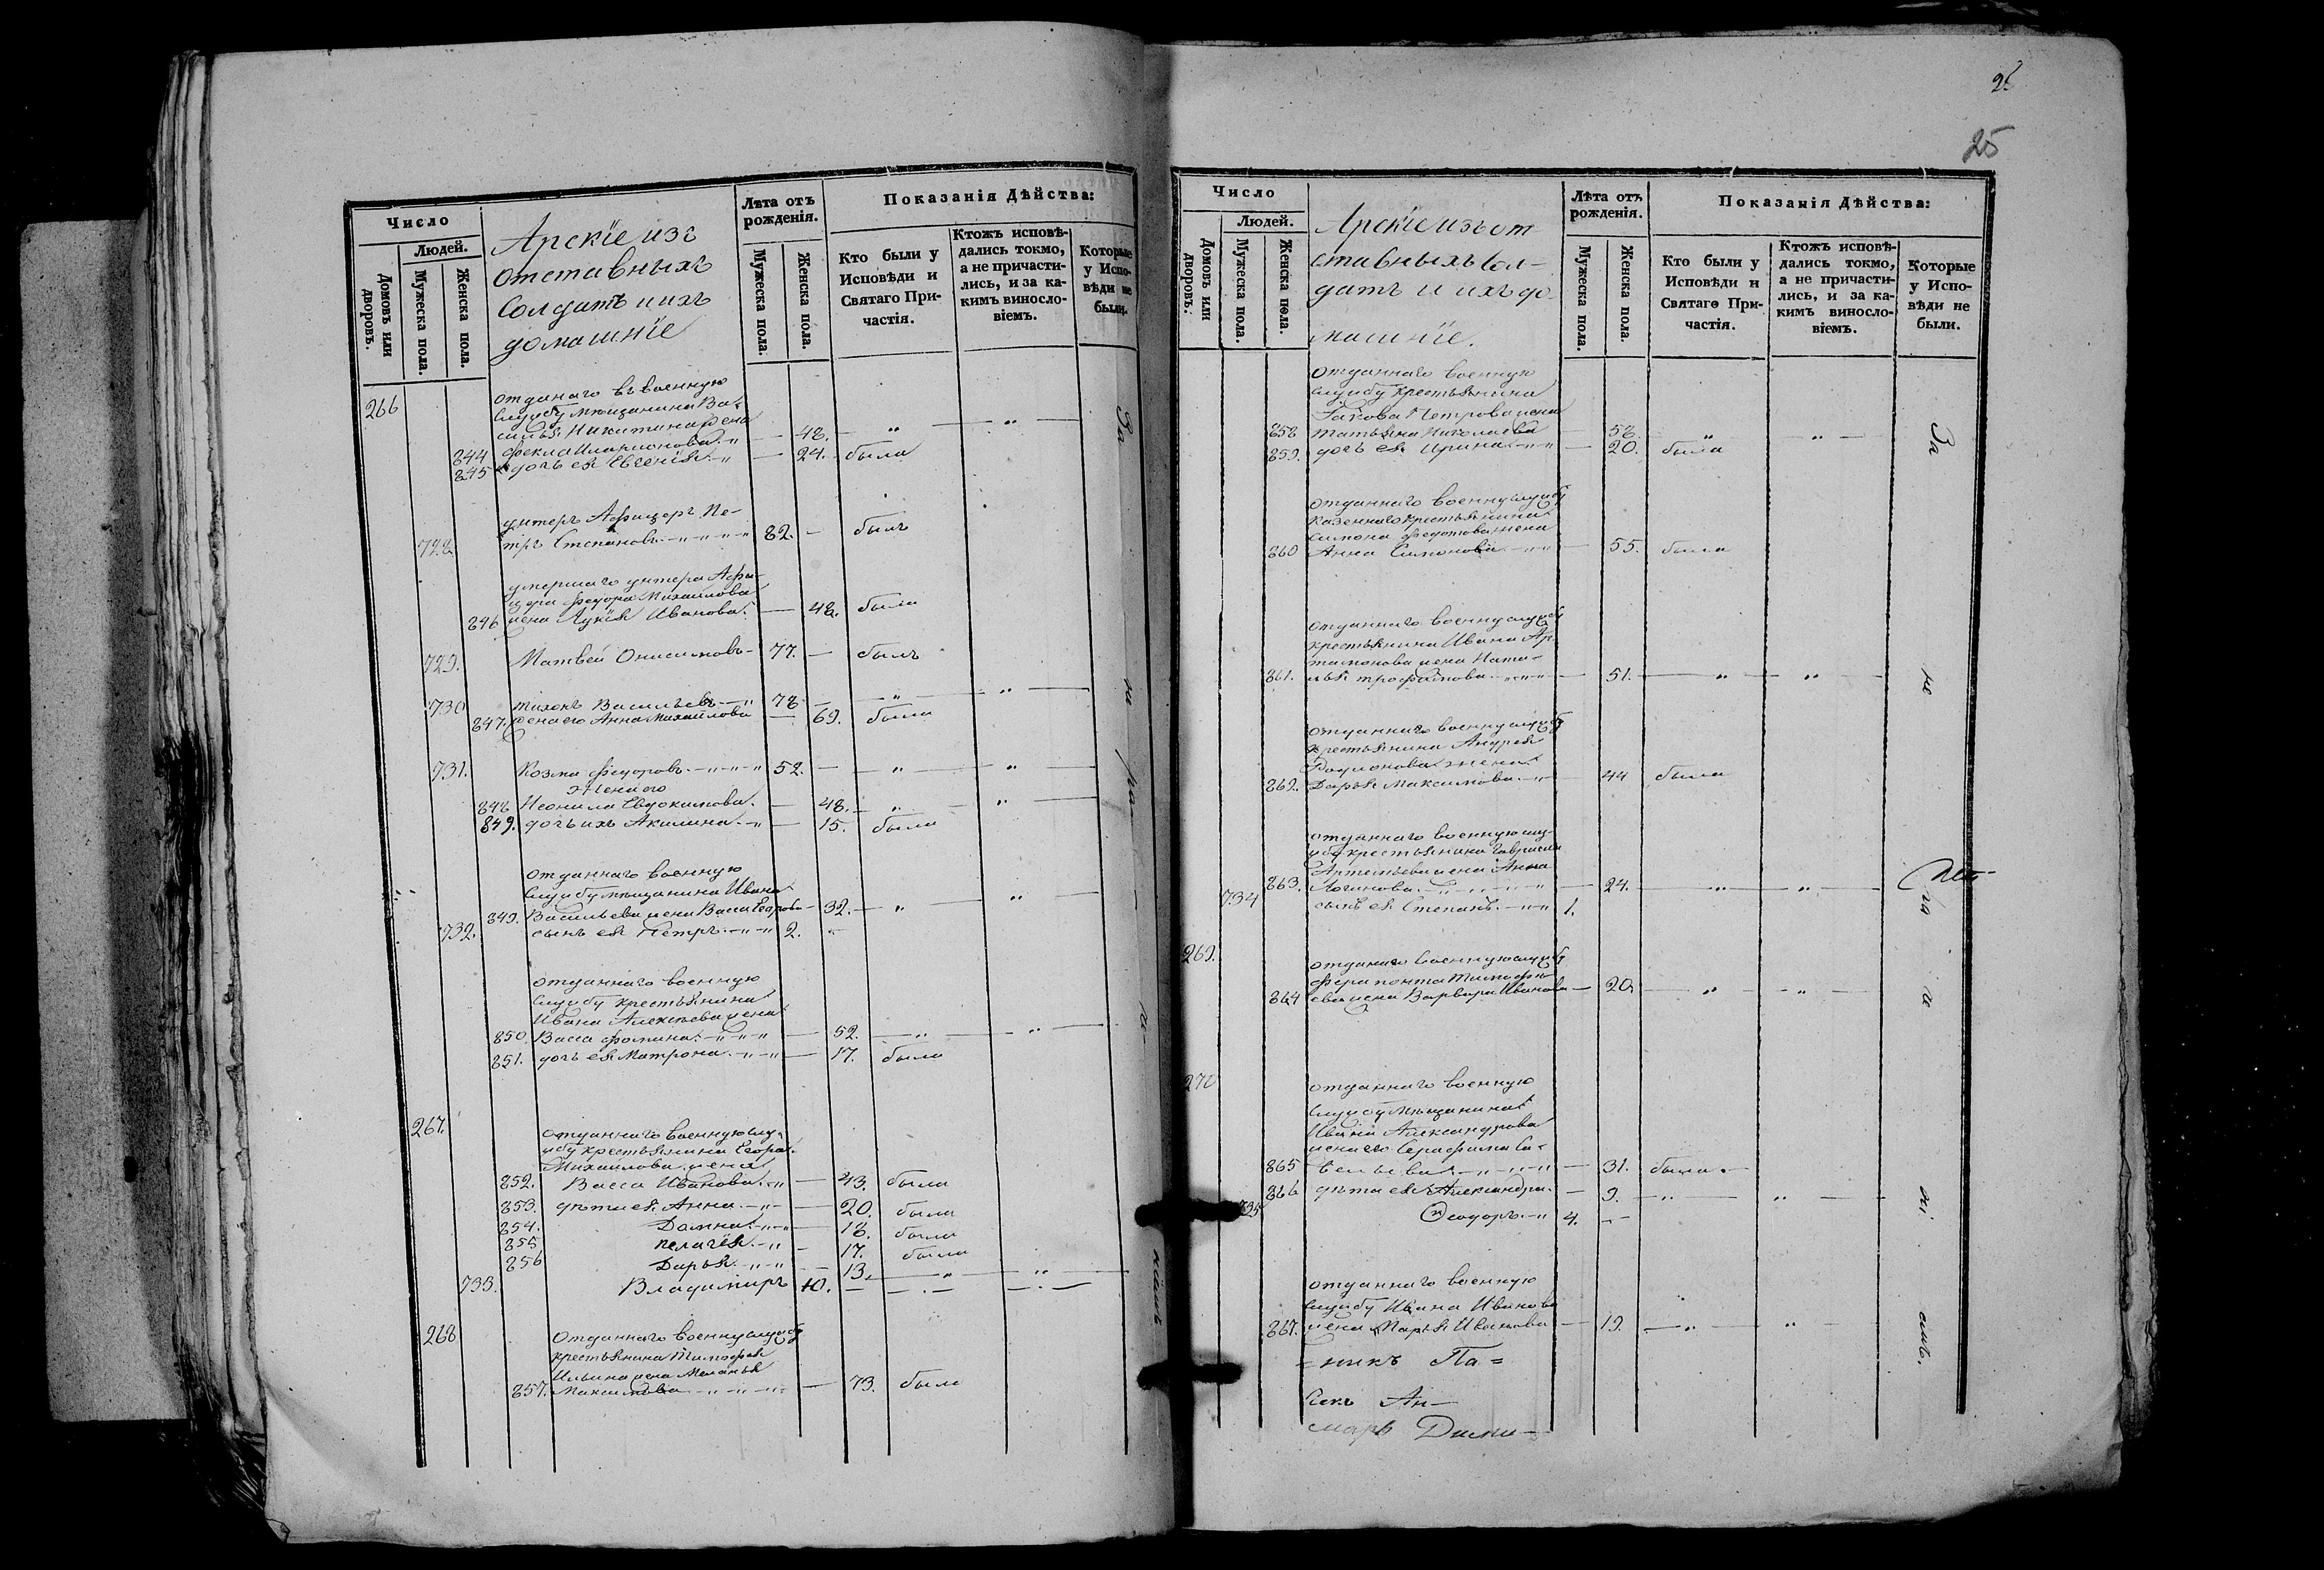 Число
Людей.
Домовъ или дворовъ.
Мужеска пола.
Женска пола.
Арскіе изъ
отставныхъ
Солдатъ и ихъ
домашніе
Лѣта отъ рожденія.
Мужеска пола.
Женска пола.
Показанія Дѣйства:
Кто были у Исповѣди и Святаго Причастія.
Ктожъ исповѣдались токмо, а не причастились, и за какимъ винословіемъ.
Которые у Исповѣди не были.
266
отданаго въ военную
службу мѣщанина Ва-
силья Никитина жена
844 Фекла Иларионова 48.
845 дочь ея Евгенія 24. была
унтеръ Афицеръ Пе-
728 тръ Степановъ 82. былъ
умершаго унтера Афи-
цера Федора Михайлова
846 жена Лукія Иванова 48. была
729. Матвей Онисимовъ 77. былъ
730 Тихонъ Васильевъ 78
847. жена его Анна Михайлова 69. была
731. Козма Федоровъ 52.
Жена его
848 Неонила Евдокимова 48.
849. дочь ихъ Акилина 15. была
отданнаго военную
службу мѣщанина Ивана
849. Васильева жена Васса Егорова 32.
732. сынъ ея Петръ 2.
отданнаго военную
службу крестьянина
Ивана Алексѣева жена
850. Васса Фомина 52.
851. дочь ея Матрона 17. была
267.
отданнаго военную слу-
жбу крестьянина Егора
Михайлова жена
852. Васса Иванова 43. была
853. дѣти ея Анна 20. была
854. Домна 18. была
855 Пелагія 17. была
856 Дарья 13.
733. Владимиръ 10.
268
отданнаго военну службу
крестьянина Тимофея
Ильина жена Меланья
857. Максимова 73. была
За
не
25
Число
Людей.
Домовъ или дворовъ.
Мужеска пола.
Женска пола.
Арскіе изъ от
ставныхъ Сол-
датъ и ихъ до-
машніе.
Лѣта отъ рожденія.
Мужеска пола.
Женска пола.
Показанія Дѣйства:
Кто были у Исповѣди и Святаго Причастія.
Ктожъ исповѣдались токмо, а не причастились, и за какимъ винословіемъ.
Которые у Исповѣди не были.
отданнаго военную
службу крестьянина
Іакова Петрова жена
858 Татьяна Николаева 58.
859. дочь ея Ирина 20. была
отданнаго военну службу
казеннаго крестьянина
Симона Федотова жена
860 Анна Симонова 55. была
отданнаго военну службу
крестьянина Ивана Ар-
тамонова жена Ната-
861. лья Трофимова 51.
отданнаго военну службу
крестьянина Андрея
Родионова жена
862. Дарья Максимова 44 была
отданнаго военную слу-
жбу крестьянина Гавриила
Артемьева жена Анна
863. Логинова 24.
734 сынъ ея Степанъ 1.
269.
отданаго военную службу
Ферапонта Тимофѣ-
864 ева жена Варвара Иванова 20.
270
отданнаго военную
службу мѣщанина
Ивана Александрова
жена его Серафима Са-
865 вельева 31. была
866 дѣти ея Александра 9.
735 Феодоръ 4.
отданнаго военную
службу Ивана Иванова
867. жена Марья Иванова 19.
=никъ Па=
Ан-
Дими-
За
не